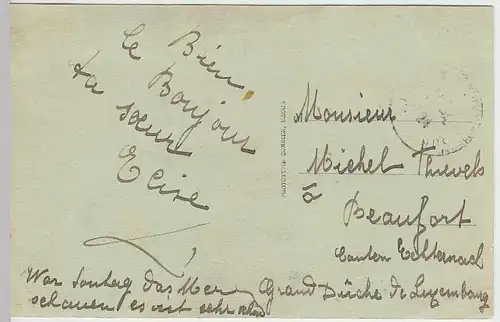 le Bien
Bonjour
ta sœur
Elise
War Sontag das Meer
schauen es ist sehr schön
Monsieur
Michel Thevels
à
Beaufort
Canton Echternach
Grand Düché de Luxembourg